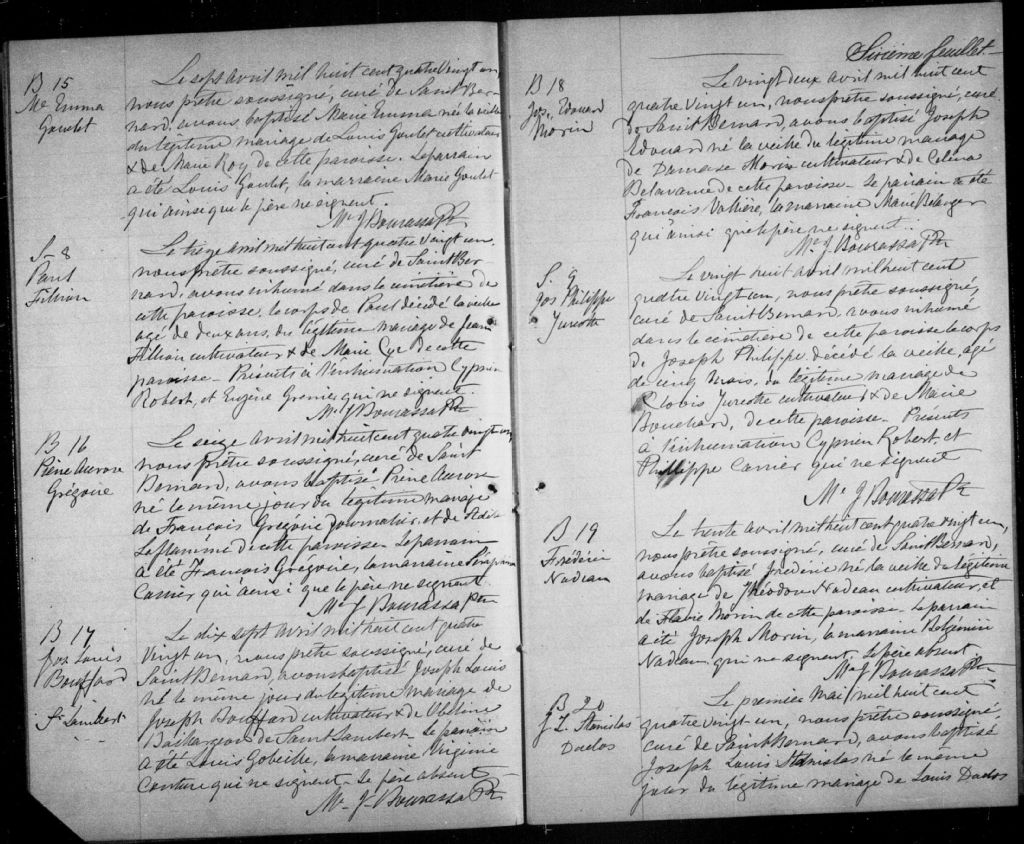 B 15
Me Emma
Goulet
Le sept avril mil huit cent quatre vingt un
nous prêtre soussigné, curé de Saint Ber-
nard, avons baptisé Marie Emma née la veille
du légitime mariage de Louis Goulet cultivateur
& de Marie Roy de cette paroisse. Le parrain
a été Louis Goulet, la marraine Marie Goulet
qui ainsi que le père ne signent.
Me J Bourassa Ptr
S- 8
Paul
Fillion
Le treize avril mil huit cent quatre vingt un
nous prêtre soussigné, curé de Saint Ber-
nard, avons inhumé dans le cimetière de
cette paroisse le corps de Paul décédé la veille
agé de deux ans, du légitime mariage de Jean
Fillion cultivateur & de Marie Cyr de cette
paroisse - Présents à l'inhumation Cyprien
Robert, et Eugène Grenier qui ne signent.
Me J Bourassa Ptr
B 16
Pierre Aurore
Grégoire
Le seize avril mil huit cent quatre vingt un,
nous prêtre soussigné, curé de Saint
Bernard, avons baptisé Pierre Aurore
né le même jour du légitime mariage
de François Grégoire journalier, et de
Laflamme de cette paroisse - Le parrain
a été François Grégoire, la marraine
Carrier qui ainsi que le père ne signent.
Me J Bourassa Ptr
B 17
Jos Louis
Bouffard
St Lambert
Le dix sept avril mil huit cent quatre
vingt un, nous prêtre soussigné, curé de
Saint Bernard, avons baptisé Joseph Louis
né le même jour du légitime mariage de
Joseph Bouffard cultivateur & de
Baillargeon de Saint Lambert - Le parrain
a été Louis Gobeille, la marraine Virginie
Couture qui ne signent - Le père absent
Me J- Bourassa Ptr
Sixième feuillet -
B 18
Jos. Edouard
Morin
Le vingt deux avril mil huit cent
quatre vingt un, nous prêtre soussigné, curé
de Saint Bernard, avons baptisé Joseph
Edouard né la veille du légitime mariage
de Damase Morin cultivateur & de Célina
de cette paroisse - Le parrain a été
François Vallière, la marraine Marie Belanger
qui ainsi que le père ne signent.
Me J Bourassa Ptr
S. 9
Jos Philippe
Turcotte
Le vingt huit avril mil huit cent
quatre vingt un, nous prêtre soussigné,
curé de Saint Bernard avons inhumé
dans le cimetière de cette paroisse le corps
de Joseph Philippe décédé la veille, agé
de cinq mois, du légitime mariage de
Clovis Turcotte cultivateur & de Marie
Bouchard, de cette paroisse - Présents
à l'inhumation Cyprien Robert, et
Philippe Carrier qui ne signent
Me J Bourassa Ptr
B 19
Frédéric
Nadeau
Le trente avril mil huit cent quatre vingt un,
nous prêtre soussigné, curé de Saint Bernard,
avons baptisé Frédéric né la veille du légitime
mariage de Théodore Nadeau cultivateur, et
de Flavie Morin de cette paroisse - Le parrain
a été Joseph Morin, la marraine
Nadeau qui ne signent, Le père absent
Me J Bourassa Ptr
B 20
J. L. Stanislas
Duclos
Le premier mai mil huit cent
quatre vingt un, nous prêtre soussigné,
curé de Saint Bernard, avons baptisé
Joseph Louis Stanislas né le même
jour du légitime mariage de Louis Duclos